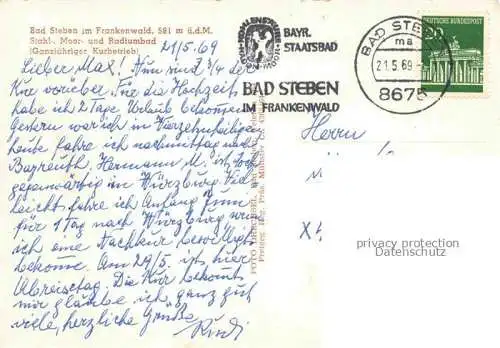 Bad Steben im Frankenwald, 581 m ü.d.M.
Stahl-, Moor- und Radiumbad
(Ganzjähriger Kurbetrieb)
21/5.69
Lieber Max! Nun sind 3/4 der
Kur vorüber. Für die Hochzeit
habe ich 2 Tage Urlaub bekommen
Gestern war ich in Vierzehnheiligen
heute fahre ich nachmittag nach
Bayreuth. Hermann M. ist
gegenwärtig in Würzburg. Viel
leicht fahre ich Anfang Juni
für 1 Tag nach Würzburg wenn
ich eine Nachkur bewilligt
bekomme. Am 29/5. ist hier
Abreisetag. Die Kur bekommt
mir glaube ich, ganz gut
viele, herzliche Grüße
Rudi
BAYR.
STAATSBAD
BAD STEBEN
IM FRANKENWALD
BAD STEBEN
ma
21.5.69
8675
DEUTSCHE BUNDESPOST
Herrn
privacy protection
Datenschutz